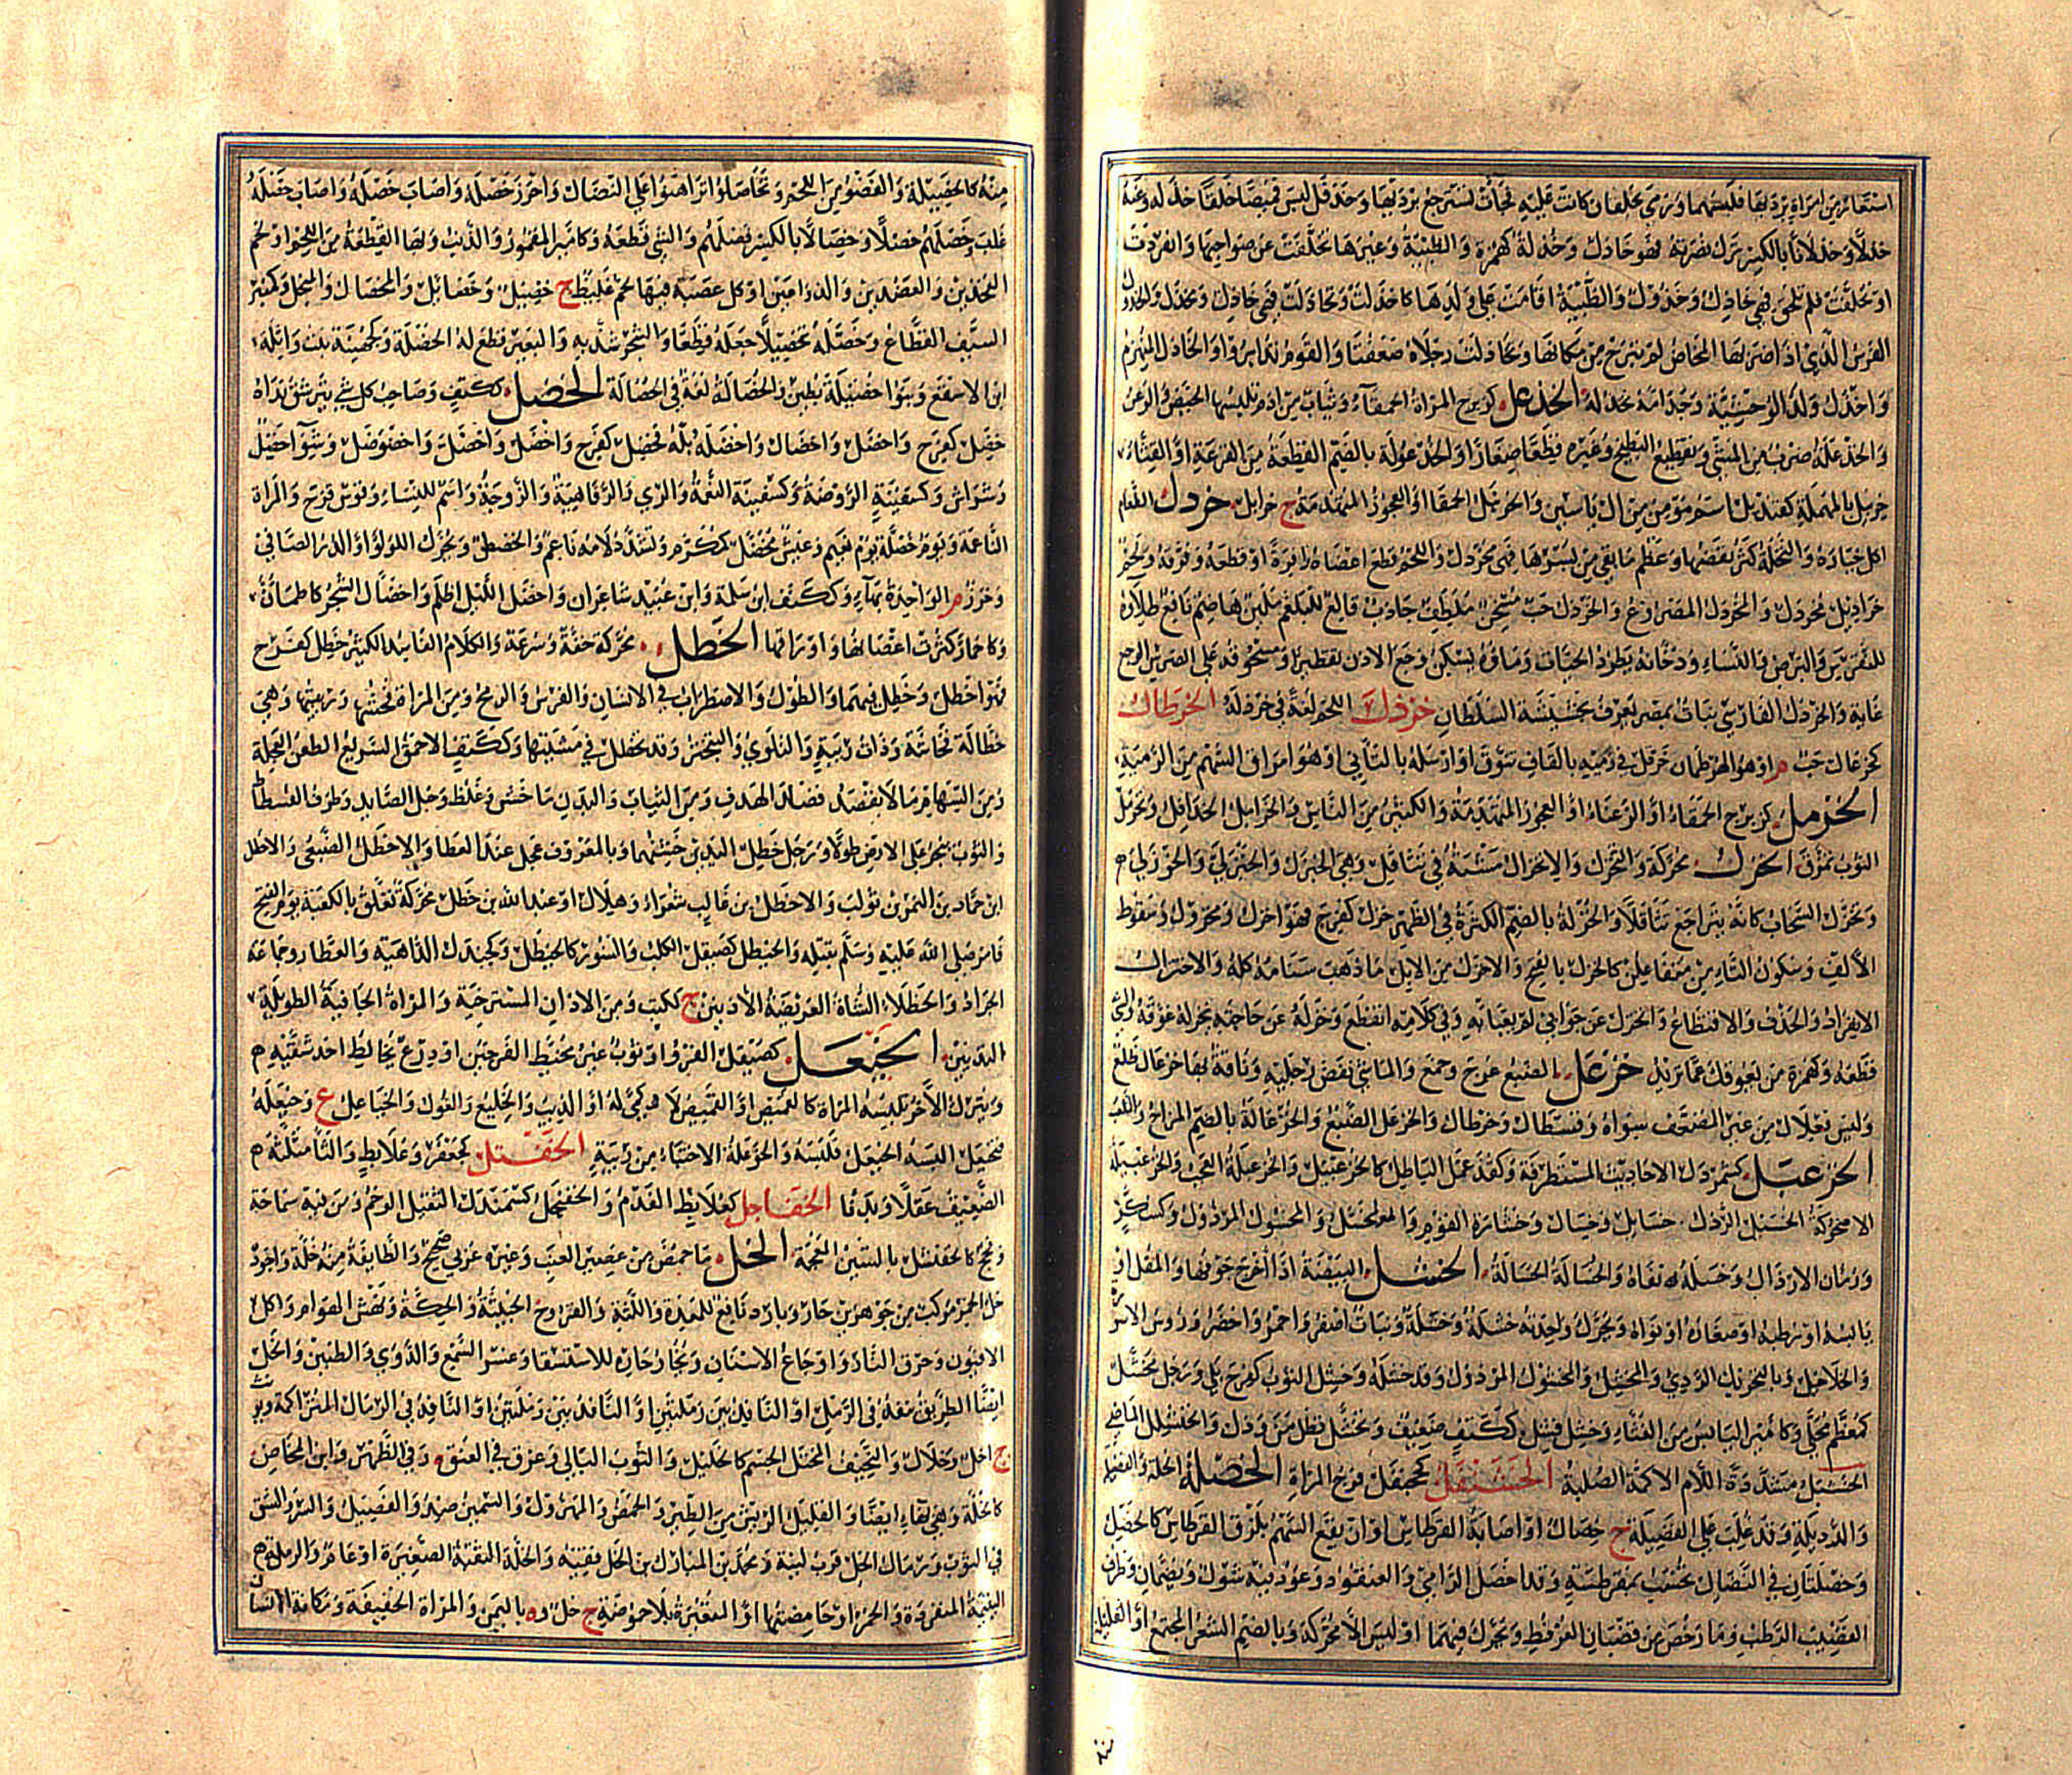 استعار من امراة برديها فلبسهما ورمى بخلقان كانت عليه فجآت تسترجع برديها وقد قال لبس قميصا خلقا خذله وعنه
خذلا وخذلانا بالكسر ترك نصرته فهو خاذل وخذلة كهمزة والظبية وغيرها تخلفت عن صواحبها وانفردت
او تخلفت فلم تلحق فهي خاذل وخذول والظبية اقامت على ولدها كاخذلت وتخاذلت فهي خاذل ومخذل والخذول
الفرس التي اذا ضربها المخاض لم تبرح من مكانها وتخاذلت رجلاه ضعفتا والقوم تدابروا والخاذل المنهزم
واخذل ولد الوحشية وجد امه تخذله الخذعل كزبرج المراة الحمقآء وثياب من ادم تلبسها الحيض والرعن
والخذعلة ضرب من المشي وتقطيع البطيخ وغيره قطعا صغارا والخذعولة بالضم القطعة من القرعة او القثاء
خربيل بالمهملة كقنديل اسم مؤمن من ال ياسين والخرنبل الحمقا او العجوز المتهدمة ج خرابل خردل الطعام
اكل خياره والنخلة كثر نفضها وعظم ما بقي من بسرها فهي مخردل واللحم قطع اعضاه وافرة او قطعه وفرقه ولحم
خراديل مخردل والمخردل المصروع والخردل حب مسخن ملطف جاذب قالع للبلغم ملين هاضم نافع طلاوه
للنقرس والبرص والنساء ودخانه يطرد الحيات وماؤه يسكن وجع الاذن تقطيرا ومسحوقه على الضرس الوجع
غاية والخردل الفارسي نبات بمصر يعرف بحشيشة السلطان خرذل اللحم لغة في خردله الخرطال
كخزعال حب م او هو الهرطمان خرقل في رميه بالقاف تنوق او ارسله بالتاني او هو امراق السهم من الرمية
الخرمل كزبرج الحمقاء او الرعناء او العجوز المتهدمة والكثير من الناس والخرامل الخذافل وتخرمل
الثوب تمزق الخزل محركة والتخزل والانخزال مشية في تثاقل وهي الخيزل والخيزلى والخوزلى م
وتخزل السحاب كانه يتراجع تثاقلا والخزلة بالضم الكثرة في الظهر خزل كفرح فهو اخزل ومخزول وسقوط
الالف وسكون التاء من متفاعلن كالخزل بالفتح والاخزل من الابل ما ذهب سنامه كله والاختزال
الانفراد والحذف والاقتطاع وانخزل عن جوابي لم يعبا به وفي كلامه انقطع وخزله عن حاجته يخزله عوقه والشي
قطعه وكهمزة من يعوقك عما تريد خزعل الضبع عرج وخمع والماشي نفض رجليه وناقة بها خزعال ظلع
وليس فعلال من غير المضعف سواه وقسطال وخرطال والخزعل الضبع والخزعالة بالضم المزاح واللعب
الخزعبل كشمردل الاحاديث المستظرفة وكقذعمل الباطل كالخزعبيل والخزعبلة العجب والخزعبيلة
الاضحوكة الخسيل الرذل خسايل وخسال وخشارة القوم والمخسل والمخسول المرذول وكسكر
ورمان الارذال وخسله نفاه والخسالة الحسالة الخشل البيضة اذا اخرج جوفها والمقل او
يابسه او رطبه او صغاره او نواه ويحرك واحدته خشلة وخشلة ونبات اصفر واحمر واخضر ورؤس الاسورة
والخلاخيل وبالتحريك الردي والمخشل والمخشول المرذول وقد خشله وخشل الثوب كفرح بلي ورجل مخشل
كمعظم محلى وكامير اليابس من الغثاء وخشل فشل ككتف ضعيف وتخشل تطامن وذل والخنشليل الماضي
الخشبل مشددة اللام الاكمة الصلبة الخشنفل كجحنفل فرج المراة الخصلة الخلة والفضيلة
والرذيلة وقد غلب على الفضيلة ج خصال او اصابة القرطاس او ان يقع السهم بلزق القرطاس كالخصل
وخصلتان في النضال تحتسب بمقرطسة وقد اخصل الرامي والعنقود وعود فيه شوك ويضمان وطرف
القضيب الرطب وما رخص من قضبان العرفط وتحرك فيهما او ليس الا محركة وبالضم الشعر المجتمع او القليل
منه كالخصيلة والعضو من اللحم وتخاصلوا تراهنوا على النضال واحرز خصلة واصاب خصلة واصاب خصله
غلب وخصلهم خصلا وخصالا بالكسر فضلهم والشي قطعه وكامير المقمور والذنب وبها القطعة من اللحم او لحم
الفخذين والعضدين والذراعين او كل عصبة فيها لحم غليظ ج خصيل وخصائل والمخصال والمنجل وكمنبر
السيف القطاع وخصله تخصيلا جعله قطعا والشجر شذبه والبعير قطع له الخصلة وكجهينة بنت واثلة
ابن الاسقع وبنو خصيلة بطين والخصالة لغة في الحصالة الخضل ككتف وصاحب كل شي يترشش نداه
خضل كفرح واخضل واخضال واخضله بله فخضل كفرح واخضل واخضل واخضوضل وشوآ خضل
رشراش وكسفينة الروضة وكسفينة النعمة والري والرفاهية والزوجة واسم للنساء وقوس قزح والمراة
الناعمة ويوم خضلة يوم نعيم وعيش مخضل كمكرم وتشدد لامه ناعم والخضل ويحرك اللؤلؤ او الدر الصافي
وخرز م الواحدة بهآء وككتف ابن سلمة وابن عبيد شاعران واخضل الليل اظلم واخضال الشجر كاطمان
وكاحمار كثرت اغصانها واوراقها الخطل محركة خفة وسرعة والكلام الفاسد الكثير خطل كفرح
فهو اخطل وخطل فيهما والطول والاضطراب في الانسان والفرس والرمح ومن المراة فحشها وريبتها وهي
خطالة فحاشة وذات ريبة والتلوي والتبختر وقد تخطل في مشيتها وككتف الاحمق السريع الطعن العجلة
ومن السهام ما لا يقصد قصد الهدف ومن الثياب والبدن ما خشن وغلظ وحبل الصايد وطرف الفسطاط
والثوب ينجر على الارض طولا ورجل خطل اليدين خشنهما وبالمعروف عجل عند العطا والاخطل الضبعي والاخطل
ابن حماد بن النمر بن تولب والاخطل بن غالب شعراء وهلال او عبد الله بن خطل محركة تعلق بالكعبة يوم الفتح
فامر صلى الله عليه وسلم بقتله والخيطل كصيقل الكلب والسنور كالخيطل وكجندل الداهية والعطار وجماعة
الجراد والخطلاء الشاة العريضة الاذنين ج ككتب ومن الاذان المسترخية والمراة الجافية الطويلة
اليدين الخيعل كصيقل الفرو او ثوب غير مخيط الفرجين او درع يخاط احد شقيه م
ويترك الآخر تلبسه المراة كالقميص او القميص لا كمى له او الذيب والخليع والغول والخياعل ع وخيعله
فتخيعل البسه الخيعل فلبسه والخوعلة الاختباء من ريبة الخفتل كجعفر وعلابط والثا مثلثة م
الضعيف عقلا وبدنا الخفاجل كعلابط الفدم والخفنجل كسمندل الثقيل الوخم ومن فيه سماجة
وفحج كالخفنشل بالشين المعجمة الخل ما حمض من عصير العنب وغيره عربي صحيح والطايفة منه خلة واجود
خل الخمر مركب من جوهرين حار وبارد نافع للمعدة واللثة والقروح الخبيثة والحكة ونهش الهوام واكل
الافيون وحرق النار واوجاع الاسنان وبخار حاره للاستسقا وعسر السمع والدوي والطنين والخل
ايضا الطريق ينفذ في الرمل او النافذ بين رملتين او النافذ بين رملتين او النافذ في الرمال المتراكمة ويؤنث
ج اخل وخلال والنحيف المختل الجسم كالخليل والثوب البالي وعرق في العنق وفي الظهر وابن المخاض
كالخلة وهي بهآء ايضا والقليل الريش من الطير والحمض والمهزول والسمين ضد والفصيل والشر والشق
في الثوب ورمال الخل قرب لينة ومحمد بن المبارك بن الخل فقيه والخلة الثقبة الصغيرة او عام والرملة م
اليتيمة المنفردة والخمر او حامضتها او المتغيرة بلا حموضة ج خل وه باليمن والمراة الخفيفة ومكانة الانسان